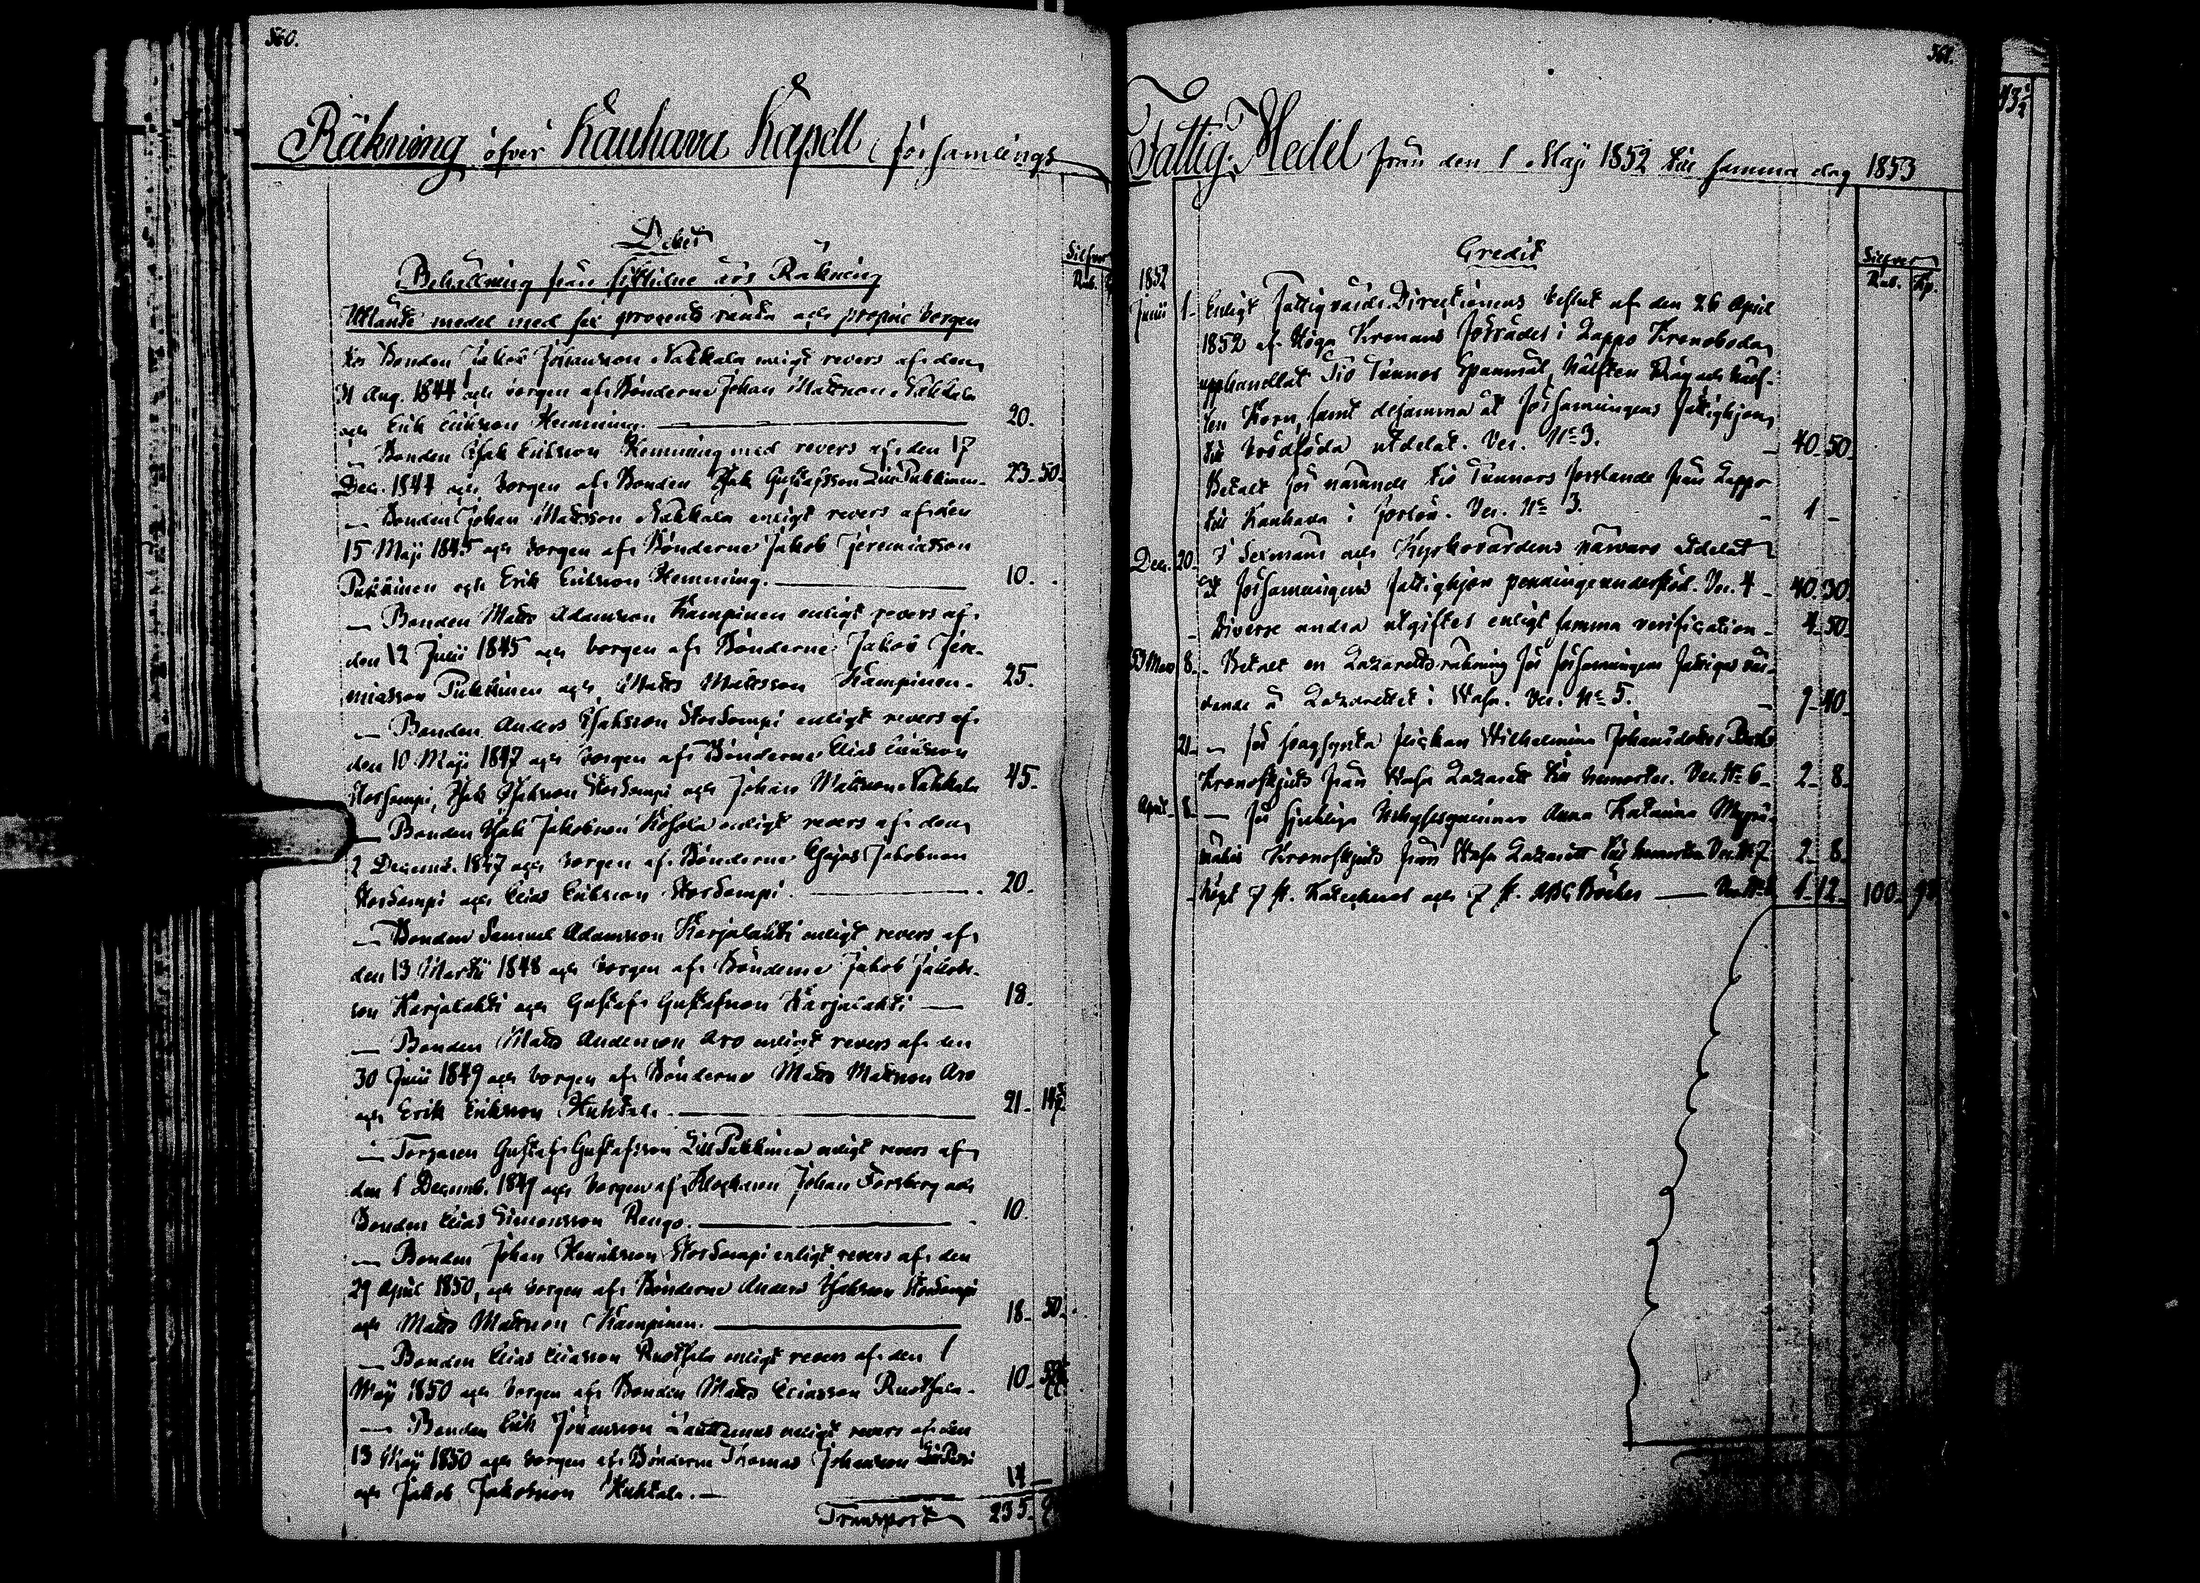 560.
Räkning öfver Kauhava Kapell Församlings
Debet
Silfver
Rub.
Behållning från sistledne års Räkning
Utlånte medel med sex procents ränta och proprie borgen
hos Bonden Jakob Johansson Nahkala enligt revers af den
31 Aug. 1844 och borgen af Bönderne Johan Mattsson Nahkala
och Erik Eriksson Hemming. 20.
— Bonden Isak Eriksson Hemming med revers af den 17
Dec. 1844 och borgen af Bonden Isak Gustafsson Lill Pukkinen. 23. 50.
— Bonden Johan Mattsson Nahkala enligt revers af den
15 Maji 1845 och borgen af Bönderne Jakob Jeremiasson
Pukkinen och Erik Eriksson Hemming. 10.
— Bonden Matts Adamsson Kampinen enligt revers af
den 12 Julii 1845 och borgen af Bönderne Jakob Jere-
miasson Pukkinen och Matts Mattsson Kampinen. 25.
— Bonden Anders Isaksson Storsompi enligt revers af
den 10 Maji 1847 och borgen af Bönderne Elias Eriksson
Storsompi, Isak Isaksson Storsompi och Johan Mattsson Nahkala 45.
— Bonden Isak Jakobsson Kosola enligt revers af den
2 Decemb. 1847 och borgen af Bönderne Esajas Jakobsson
Storsompi och Elias Eriksson Storsompi. 20.
— Bonden Samuel Adamsson Karjalahti enligt revers af
den 13 Martii 1848 och borgen af Bönderne Jakob Jakobs-
son Karjalahti och Gustaf Gustafsson Karjalahti — 18.
— Bonden Matts Andersson Aro enligt revers af den
30 Junii 1849 och borgen af Bönderne Matts Mattsson Aro
och Erik Eriksson Huhtala. 21.
— Torparen Gustaf Gustafsson Lill Pukkinen enligt revers af
den 1 Decemb. 1849 och borgen af Klockaren Johan Forsberg och
Bonden Elias Simonsson Rengo. 10.
— Bonden Johan Henriksson Storsompi enligt revers af den
29 April 1850, och borgen af Bönderne Anders Isaksson Storsompi
och Matts Mattsson Kampinen. 18. 50.
— Bonden Elias Eliasson Ruotsala enligt revers af den 1
Maji 1850 och borgen af Bonden Matts Eliasson Ruotsala. 10.
— Bonden Erik Johansson Lauttamus enligt revers af den
13 Maji 1850 och borgen af Bönderne Thomas Johansson
och Jakob Jakobsson Huhtala. — 14 —
Transport 235.
561.
Fattig-Medel från den 1 Maji 1852 till samma dag 1853
Credit
Silfver
Rub. Kp.
1852
Junii 1. Enligt Fattigvårds Direktionens beslut af den 26 April
1852 af Höga Kronans förråder i Lappo Kronobodar
upphandlat Tio Tunnor Spannmål, hälften Råg och hälf-
ten Korn, samt desamma åt församlingens fattighjon
till brödföda utdelat. Ver. No 3. 40. 50.
Betalt för nämnde tio Tunnors forslande från Lappo
till Kauhava i forlön. Ver. No 3. 1 —
Dec. 20. I Sexmäns och Kyrkovärdens närvaro utdelat
åt församlingens fattighjon penningeunderstöd. Ver. 4 40. 30.
— Diverse andra utgifter enligt samma verification — 4. 50.
53 Mars 8. — Betalt en Lazaretts räkning för församlingens fattigas vår-
dande å Lazarettet i Wasa. Ver. No 5. 9. 40.
21. — för flickan Wilhelmina Johansdotter
Kronoskjuts från Wasa Lazarett till hemorten. Ver. No 6 — 2. 8.
April 8. — för sjukliga Anna Katarina
Kronoskjuts från Wasa Lazarett till hemorten Ver. No 7 2. 8.
Köpt 7 st. Katecheser och 7 st. ABC Böcker — 1. 12. 100.